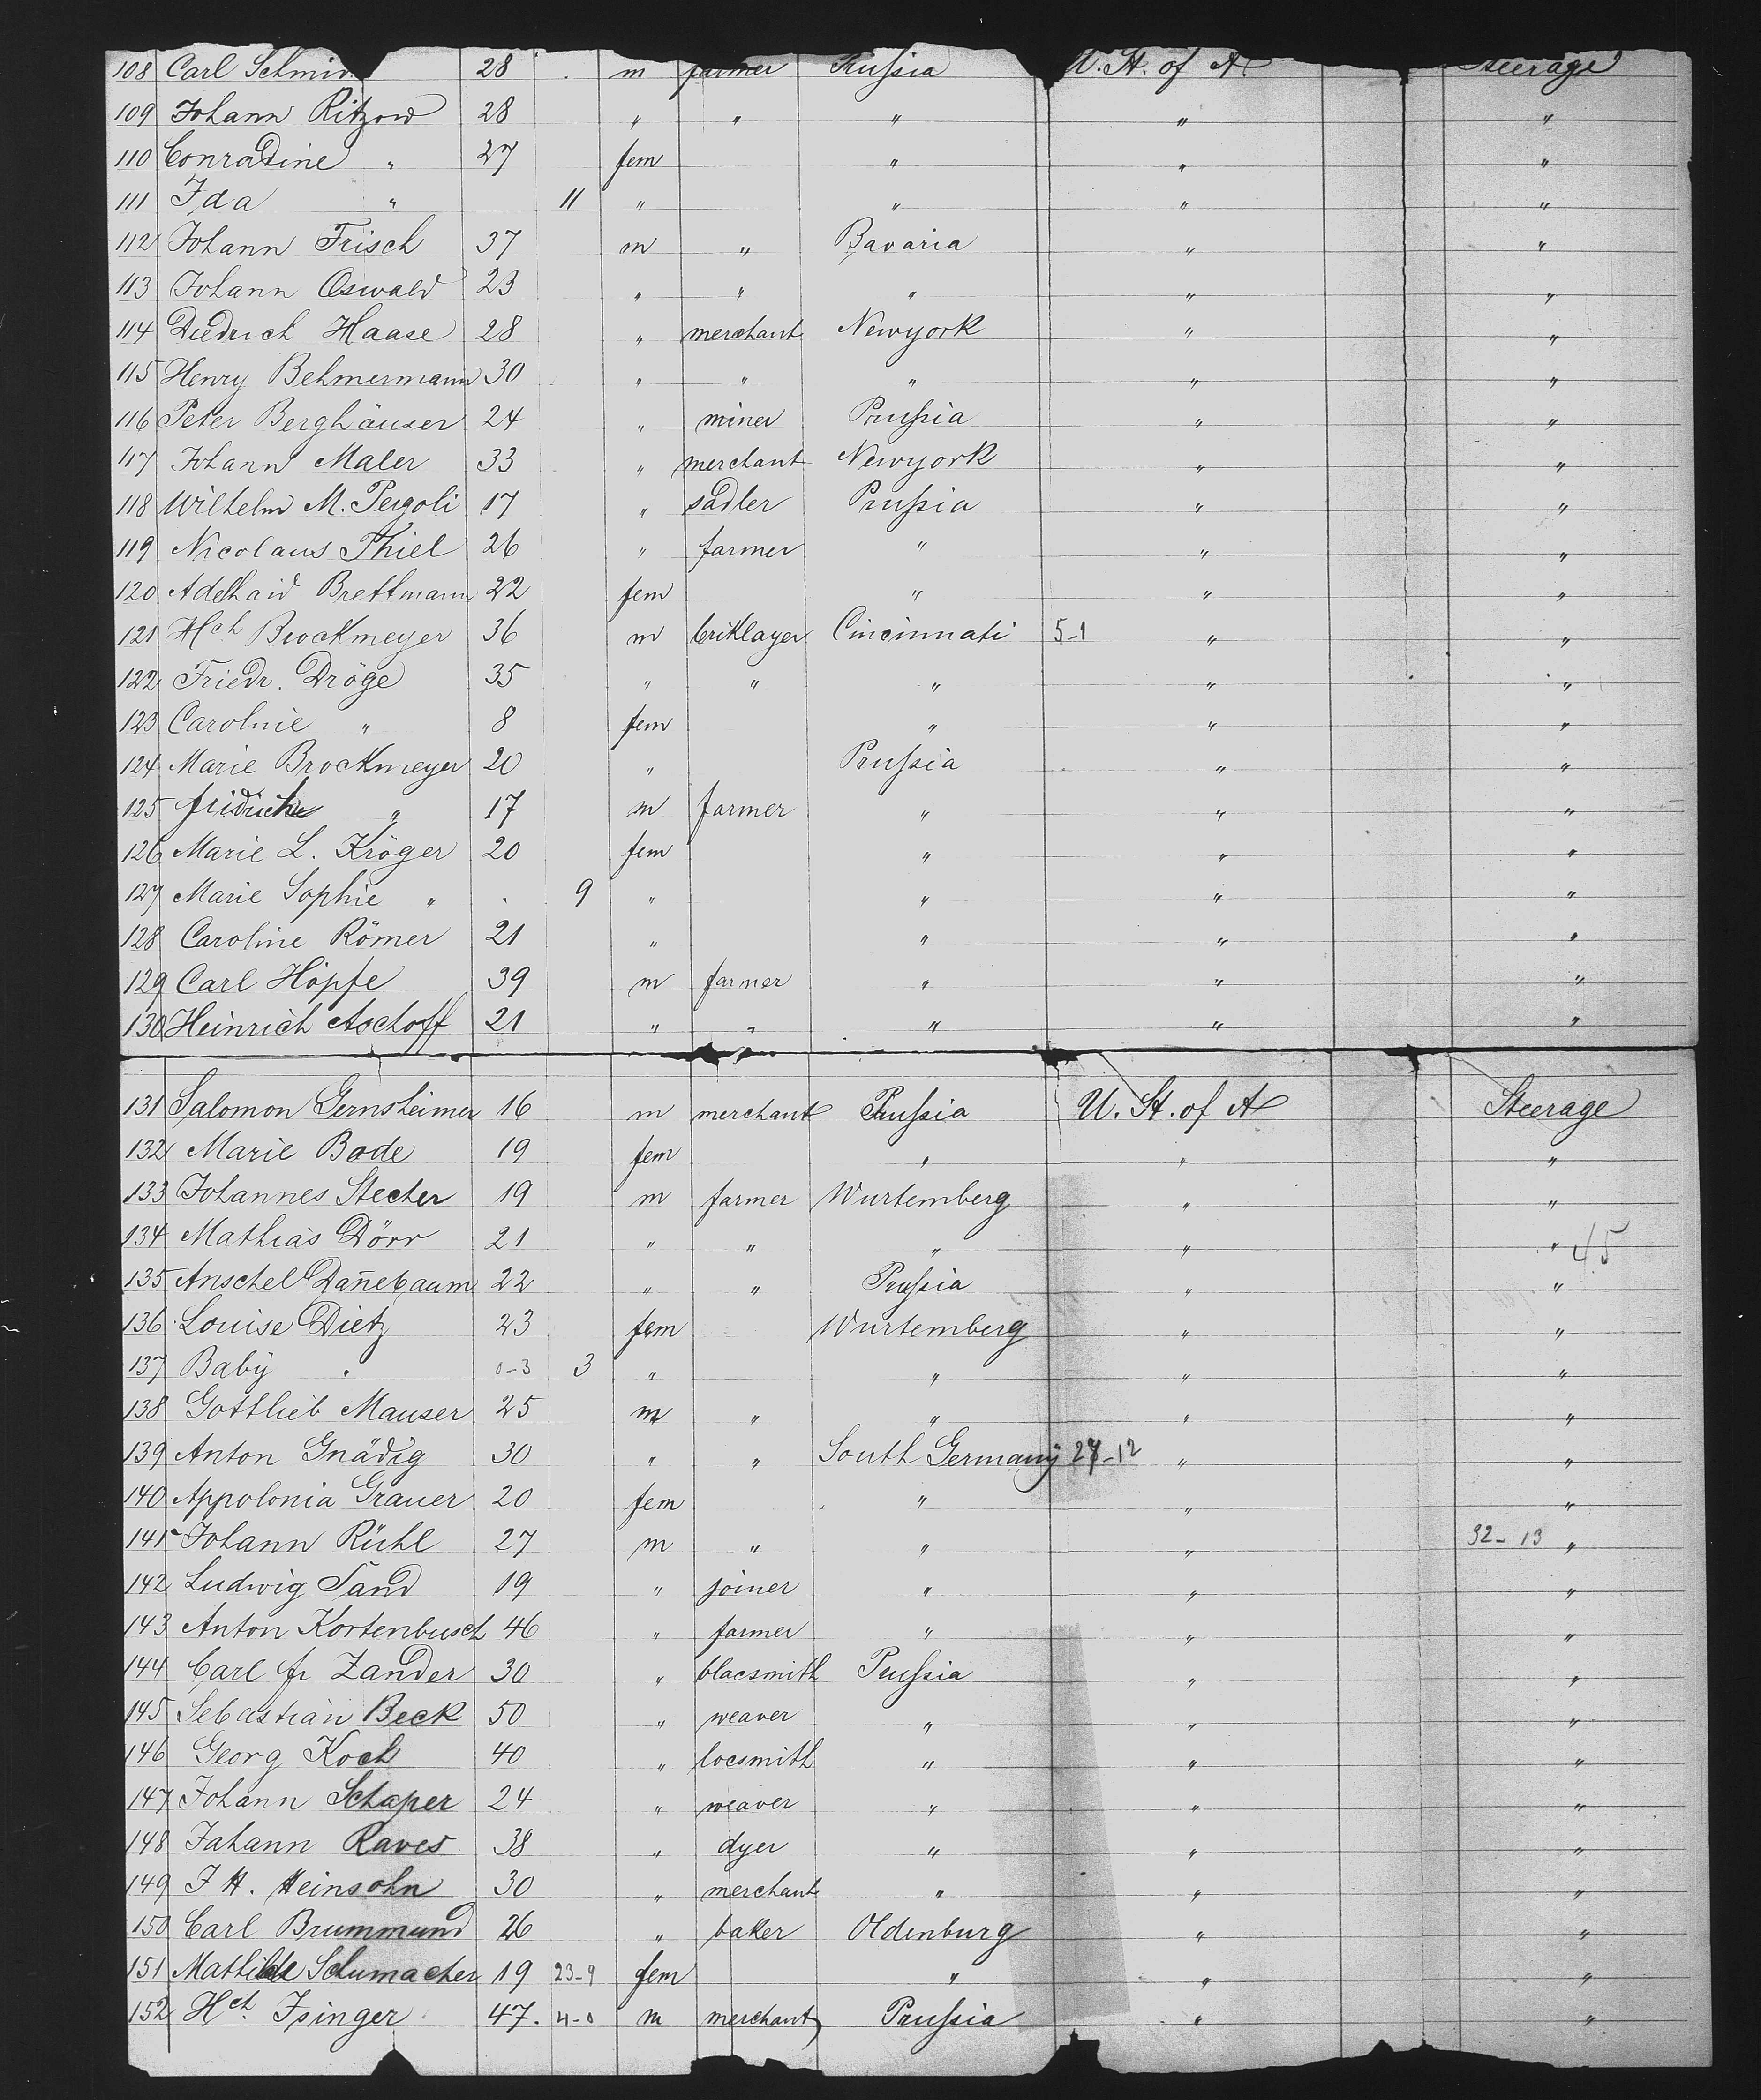 108 Carl Schmid 28 m farmer Prussia U. St. of A Steerage
109 Johann Ritzow 28 " " " " "
110 Conradine " 27 fem " " "
111 Ida " 11 " " " "
112 Johann Frisch 37 m " Bavaria " "
113 Johann Oswald 23 " " " " "
114 Diedrich Haase 28 " merchant Newyork " "
115 Henry Behmermann 30 " " " " "
116 Peter Berghäuser 24 " miner Prussia " "
117 Johann Maler 33 " merchant Newyork " "
118 Wilhelm M. Pergoli 17 " sadler Prussia " "
119 Nicolaus Thiel 26 " farmer " " "
120 Adelhaid Brettmann 22 fem " " "
121 Hch Brockmeyer 36 m briklayer Cincinnati 5-1 " "
122 Friedr. Dröge 35 " " " " "
123 Caroline " 8 fem " " "
124 Marie Brockmeyer 20 " Prussia " "
125 " 17 m farmer " " "
126 Marie L. Kröger 20 fem " " "
127 Marie Sophie " 9 " " " "
128 Caroline Römer 21 " " " "
129 Carl Höpfe 39 m farmer " " "
130 Heinrich Aschoff 21 " " " " "
131 Salomon Gernsheimer 16 m merchant Prussia U. St. of A Steerage
132 Marie Bode 19 fem " " "
133 Johannes Stecher 19 m farmer Wurtemberg " "
134 Mathias Dörr 21 " " " " " 45
135 Anschel Dan̄ebaum 22 " " Prussia " "
136 Louise Dietz 23 fem Wurtemberg " "
137 Baby " 0-3 3 " " " "
138 Gottlieb Mauser 25 m " " " "
139 Anton Gnädig 30 " " South Germany 27-12 " "
140 Appolonia Grauer 20 fem " " "
141 Johann Rühl 27 m " " " 32-13 "
142 Ludwig Sand 19 " joiner " " "
143 Anton Kortenbusch 46 " farmer " " "
144 Carl fr Zander 30 " blacsmith Prussia " "
145 Sebastian Beck 50 " weaver " " "
146 Georg Koch 40 " locsmith " " "
147 Johann Schaper 24 " weaver " " "
148 Jahann Raves 38 " dyer " " "
149 J H. Heinsohn 30 " merchant " " "
150 Carl Brummund 26 " baker Oldenburg " "
151 Mathilde Schumacher 19 23-9 fem " " "
152 Hch. Isinger 47. 4-0 m merchant Prussia " "